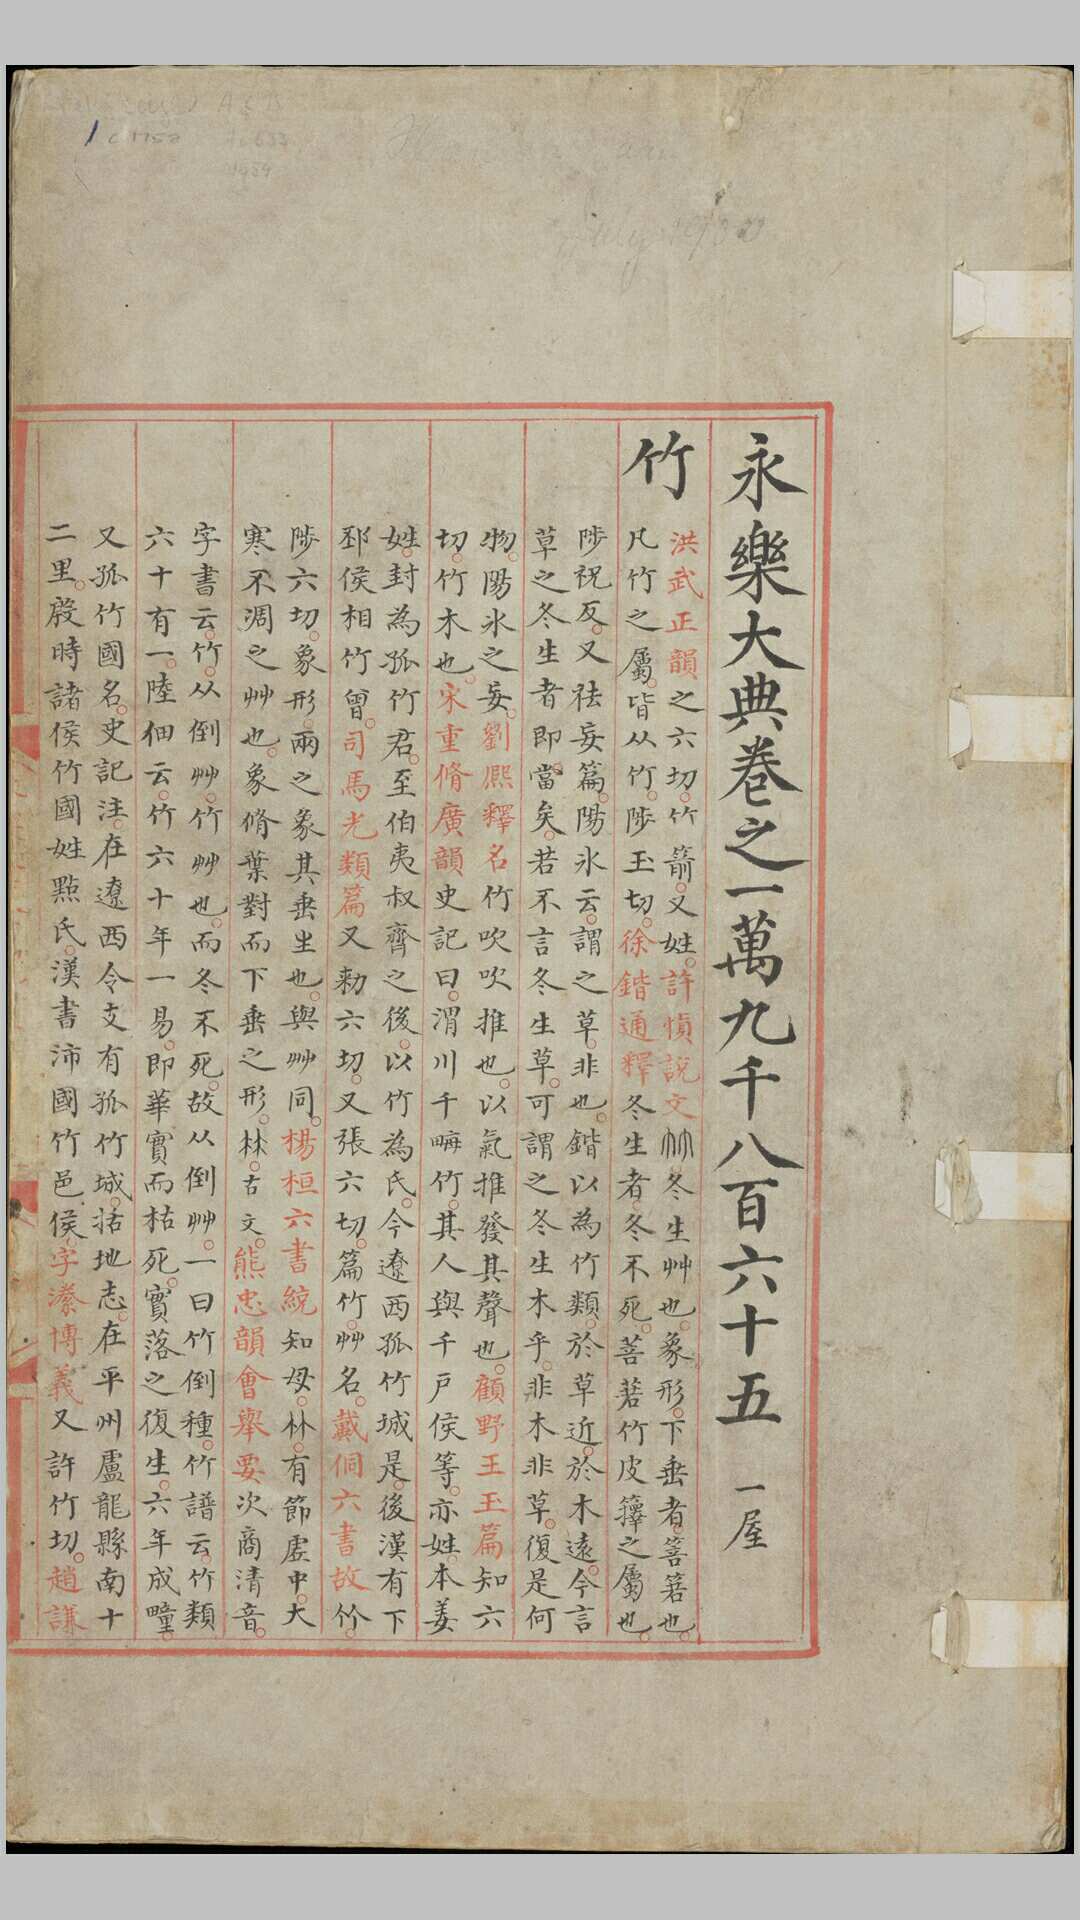 永樂大典卷之一萬九千八百六十五 一屋
竹
洪武正韻之六切。竹箭。又姓。許慎說文𥫗冬生艸也。象形。下垂者。箁箬也。
凡竹之屬。皆从竹。陟玉切。徐鍇通釋冬生者。冬不死。菩䓛竹皮籜之屬也。
陟祝反。又祛妄篇。陽氷云。謂之草。非也。鍇以為竹類。於草近。於木遠。今言
草之冬生者即當矣。若不言冬生草。可謂之冬生木乎。非木非草。復是何
物。陽氷之妄。劉熈釋名竹吹吹推也。以氣推發其聲也。顧野王玉篇知六
切。竹木也。宋重脩廣韻史記曰。渭川千畮竹。其人與千戸侯等。亦姓。本姜
姓。封為孤竹君。至伯夷叔齊之後。以竹為氏。今遼西孤竹城是。後漢有下
邳侯相竹曾。司馬光類篇又勑六切。又張六切。篇竹。艸名。戴侗六書故竹。
陟六切。象形。兩之象其垂生也。與艸同。楊桓六書統知母。林。有節虛中。大
寒不凋之艸也。象脩葉對而下垂之形。林。古文。熊忠韻會舉要次商清音。
字書云。竹。从倒艸。竹艸也。而冬不死。故从倒艸。一曰竹倒種。竹譜云。竹類
六十有一。陸佃云。竹六十年一易。即華實而枯死。實落之復生。六年成疃。
又孤竹國名。史記注。在遼西令支有孤竹城。括地志。在平州盧龍縣南十
二里。殷時諸侯竹國姓墨氏。漢書沛國竹邑。侯。字潫博義又許竹切。趙謙